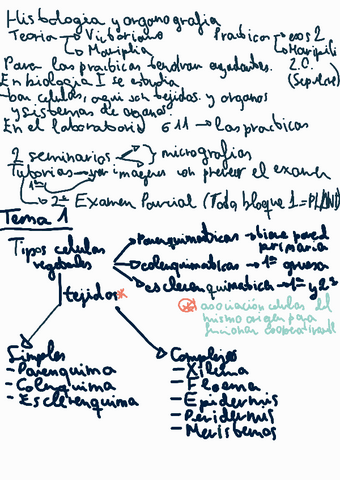 Histologia y organografia
Teoria → Victoriano Practicas → eos 2
→ Mariplia → Maripili
Para las practicas tendran ayudantes. 2.C.
En biologia I se estudia
-ban celulas, aqui son tejidos y organos
y sistemas de organos.
En el laboratorio 611 → las practicas
2 seminarios } micrografias
Tutorias → ver imagenes preveer el examen
1ª
→ 2º Examen Parcial (Todo bloque 1.=PLAND
Tema 1
Tipos celulas → Parenquimaticas → tiene pared
vegetales primaria
→ colenquimaticas → 1ª gruesa
→ esclerenquimatica → 1ª y 2ª
tejidos* * asociación celulas del
mismo origen para
funcionar
Simples
- Parenquima
- Colenquima
- Esclerenquima
Complejos
- Xilema
- Floema
- Epidermis
- Peridermis
- Meristemos